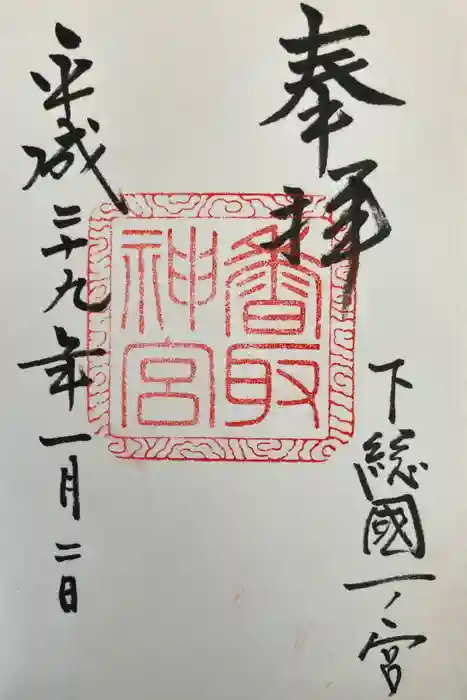 奉拝
下総國一ノ宮
香取
神宮
平成二十九年一月二日